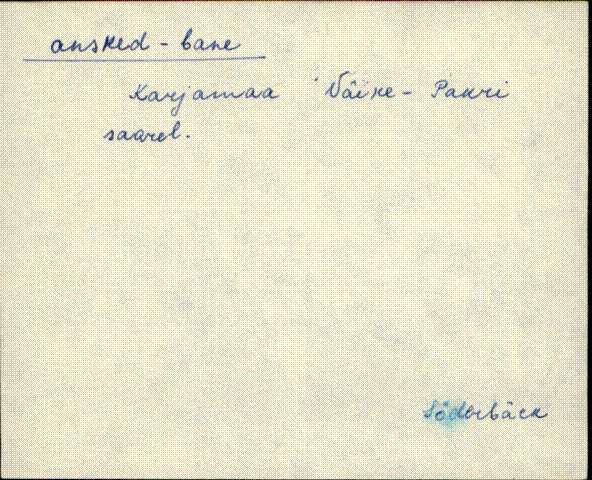 ansked-bane
Karjamaa Väike-Pakri
saarel.
Söderbäck